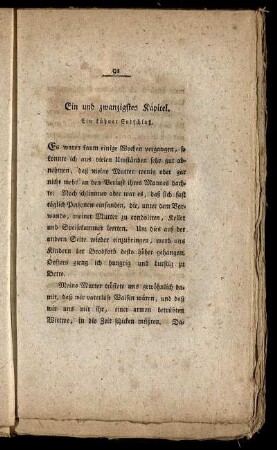 92
Ein und zwanzigstes Kapitel.
Ein kühner Entschluß.
Es waren kaum einige Wochen vergangen, so
konnte ich aus vielen Umständen sehr gut ab-
nehmen, daß meine Mutter wenig oder gar
nicht mehr an den Verlust ihres Mannes dach-
te. Noch schlimmer aber war es, daß sich fast
täglich Personen einfanden, die, unter dem Vor-
wande, meiner Mutter zu condoliren, Keller
und Speisekammer leerten. Um dies auf der
andern Seite wieder einzubringen, ward uns
Kindern der Brodkorb desto höher gehangen.
Oefters gieng ich hungrig und durstig zu
Bette.
Meine Mutter tröstete uns gewöhnlich da-
mit, daß wir vaterlose Waisen wären, und daß
wir uns mit ihr, einer armen betrübten
Wittwe, in die Zeit schicken müßten. Da-